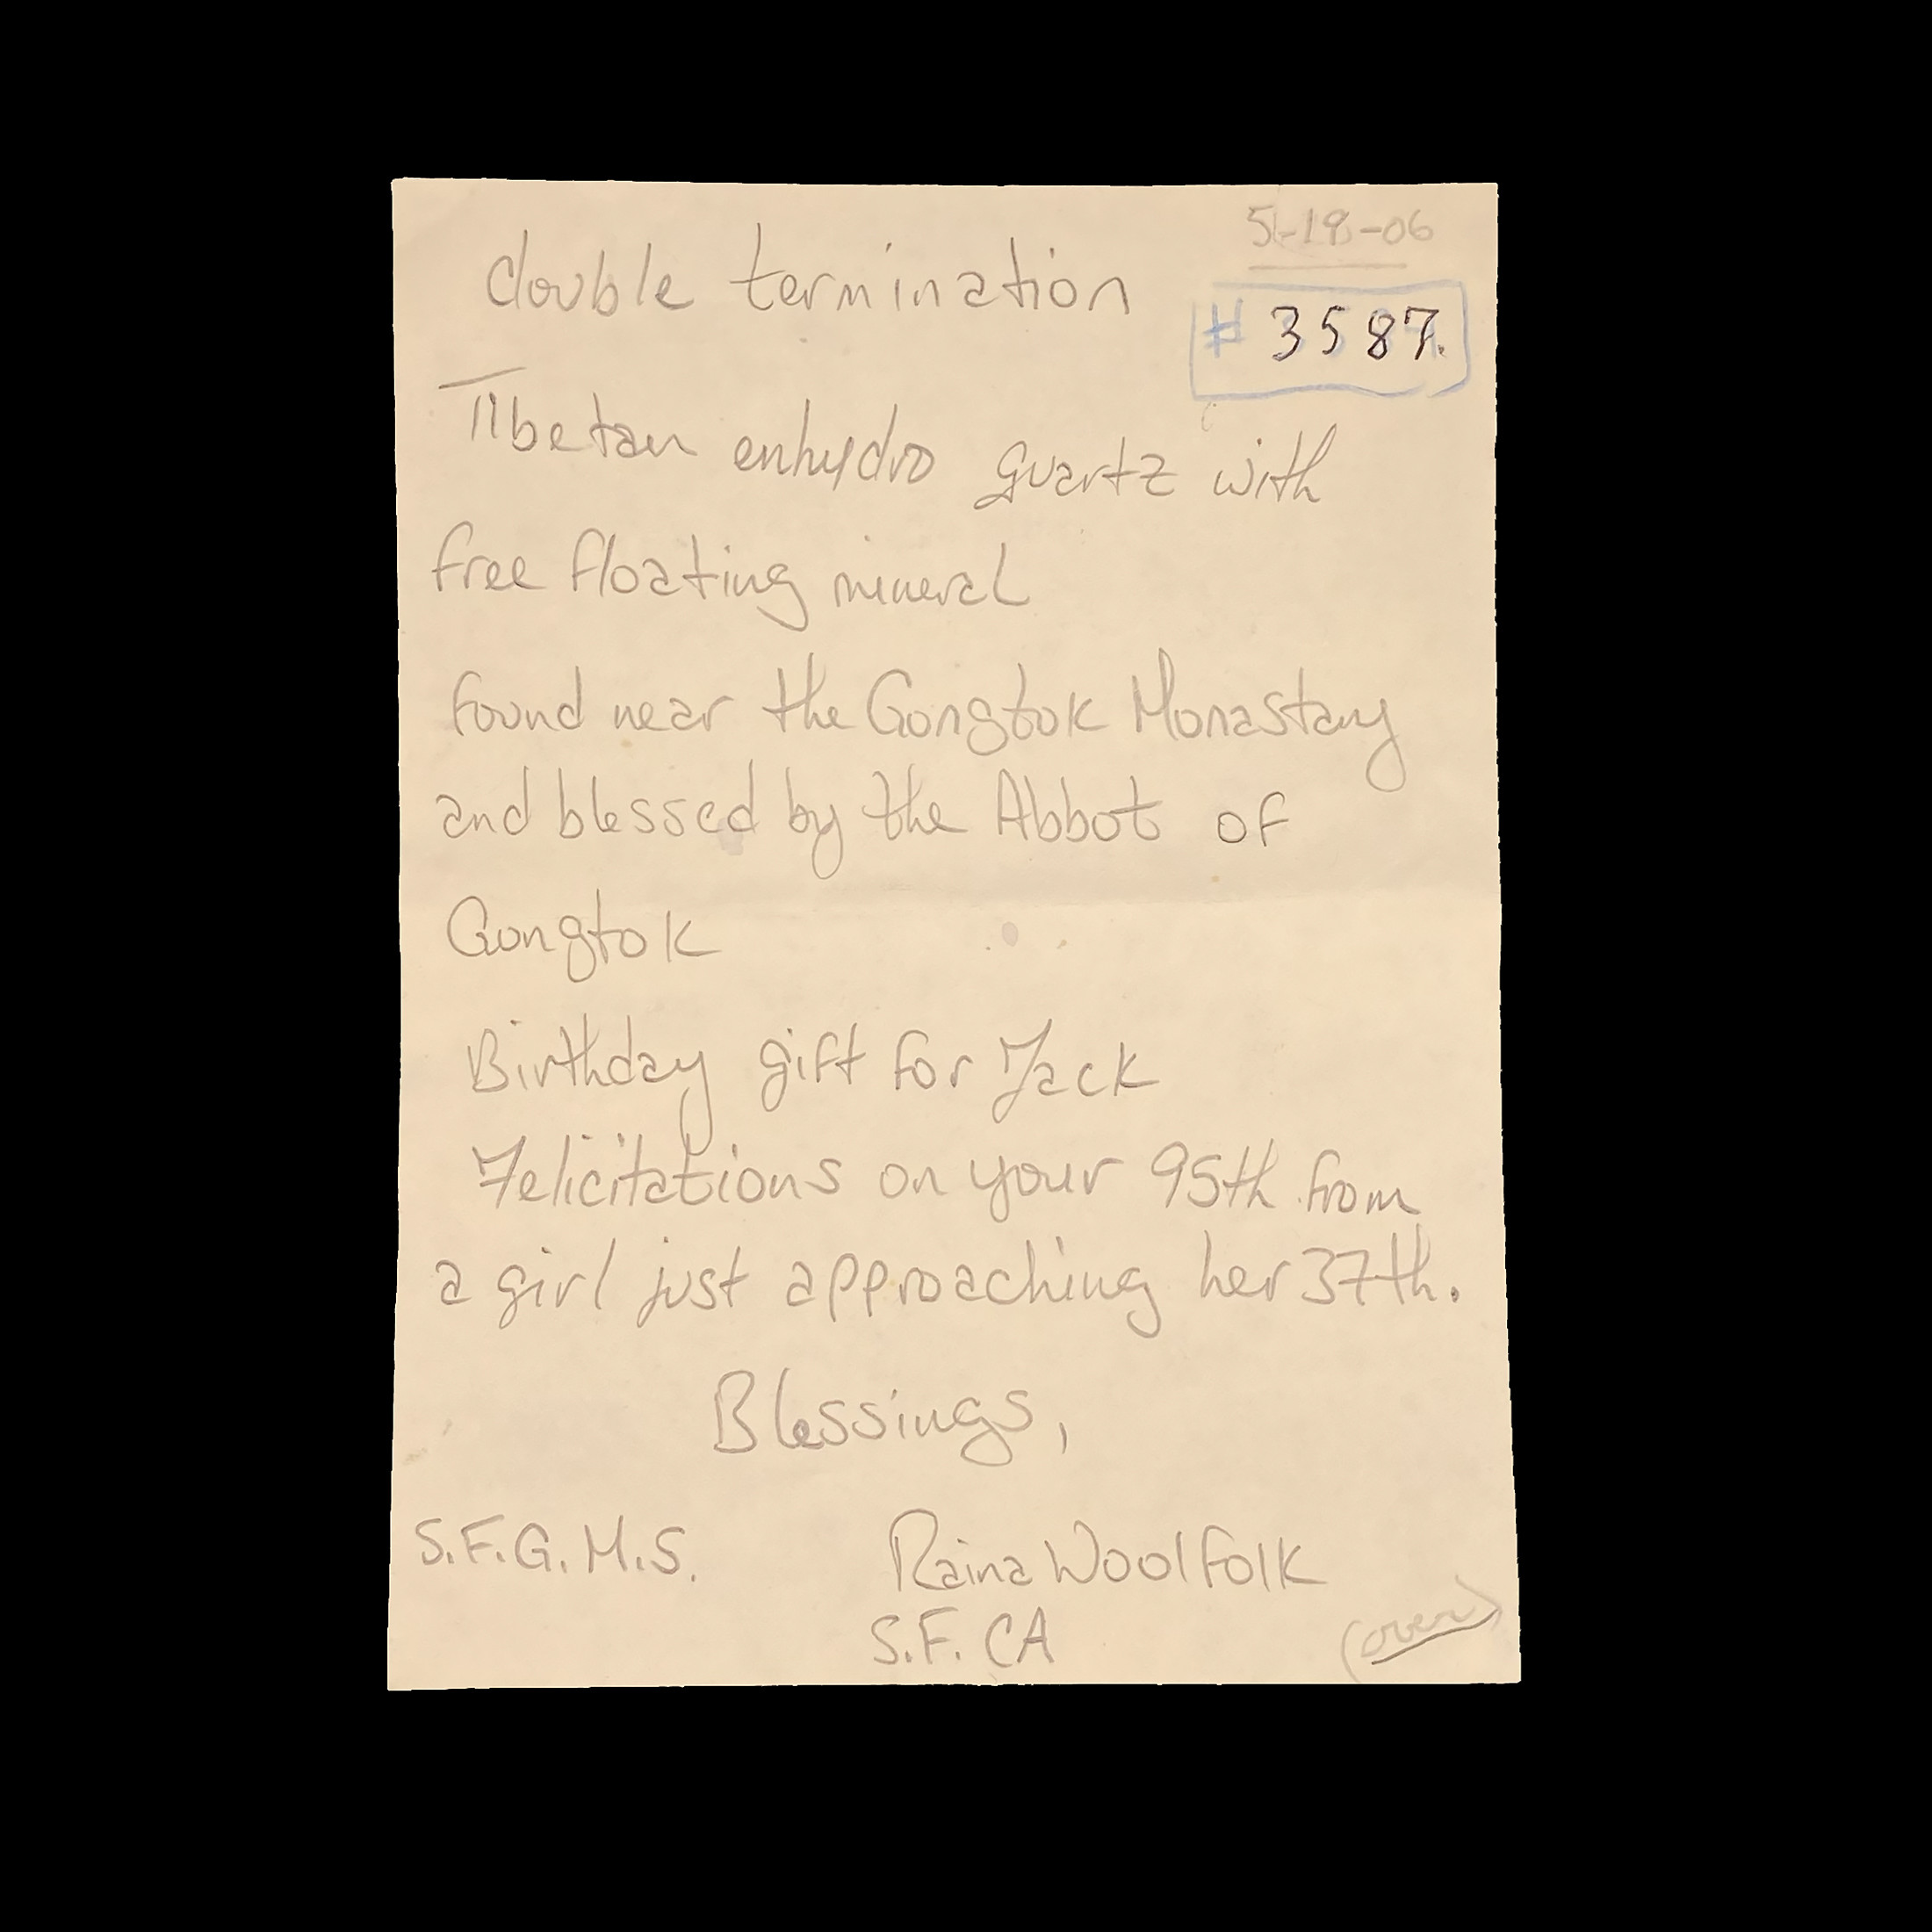 5-18-06
double termination
# 3587.
Tibetan enhydro quartz with
free floating mineral
found near the Gongtok Monastary
and blessed by the Abbot of
Gongtok
Birthday gift for Jack
Felicitations on your 95th from
a girl just approaching her 37th.
Blessings,
S.F.G.M.S. Raina Woolfolk
S.F. CA
(over)